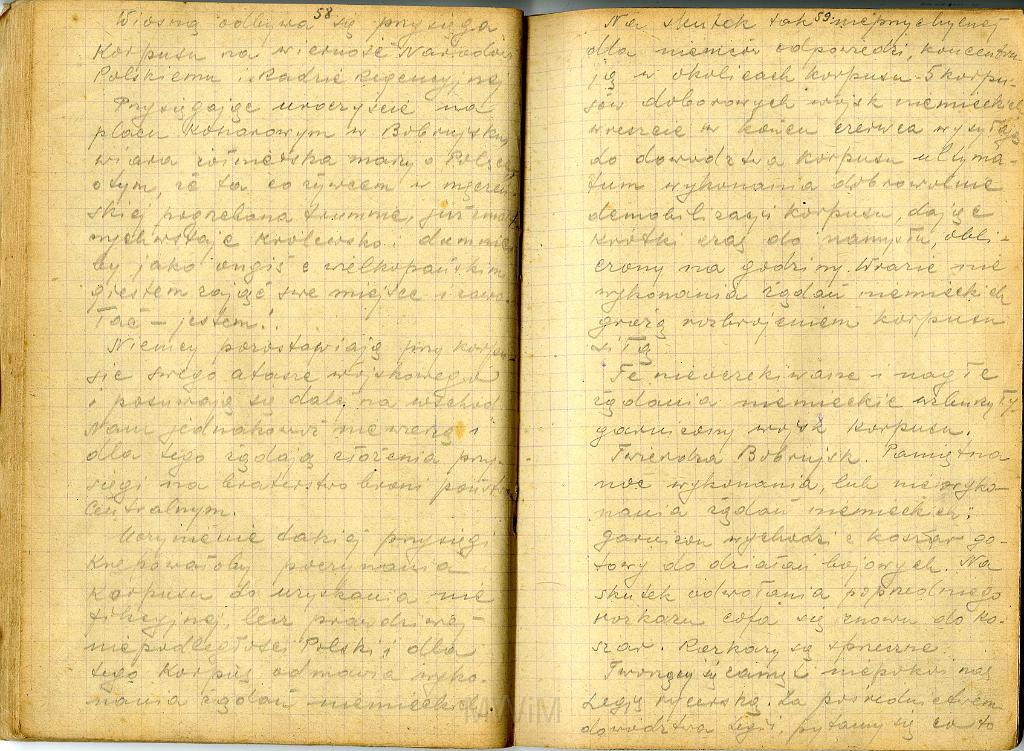 58
Wiosną odbywa się przysięga
Korpusu na wierność Narodowi
Polskiemu i Radzie Regencyjnej
Przysięgając uroczyście na
placu koszarowym w Bobrujsku,
wiara żołnierska marzy o Polsce
o tym, że ta co żywcem w męczeń-
skiej pogrzebana trumnie, już zmar-
twychwstaje królewsko i dumnie
by jako ongiś z wielkopańskim
giestem zająć swe miejsce i zawo-
łać – jestem!
Niemcy pozostawiają przy korpu-
sie swego atasze wojskowego
i posuwają się dalej na wschód
Nam jednakowoż nie wierzą i
dla tego żądają złożenia przy-
sięgi na braterstwo broni państw
Centralnym.
Uczynienie takiej przysięgi
krępowałoby poczynania
Korpusu do uzyskania nie
fikcyjnej, lecz prawdziwej –
niepodległości Polski, i dla
tego Korpus odmawia wyko-
nania żądań niemieckich.
59
Na skutek tak nieprzychylnej
dla niemców odpowiedzi, koncentru
ją w okolicach korpusu - 5 korpu-
sów doborowych wojsk niemieckich
wreszcie w końcu czerwca wysyłają
do dowództwa korpusu ultyma-
tum wykonania dobrowolnie
demobilizacji korpusu, dając
krótki czas do namysłu, obli-
czony na godziny. W razie nie
wykonania żądań niemieckich
grożą rozbrojeniem korpusu
siłą
Te nieoczekiwane i nagłe
żądania niemieckie wzburzyły
garnizony wojsk korpusu.
Twierdza Bobrujsk. Pamiętna
noc wykonania, lub nie wyko-
nania żądań niemieckich:
garnizon wychodzi z koszar go-
towy do działań bojowych. Na
skutek odwołania poprzedniego
rozkazu cofa się znowu do ko-
szar. Rozkazy są sprzeczne.
Tworzący się zamęt niepokoi nas
Legję rycerską. Za pośrednictwem
dowództwa Legii, pytamy się co to
MWiM